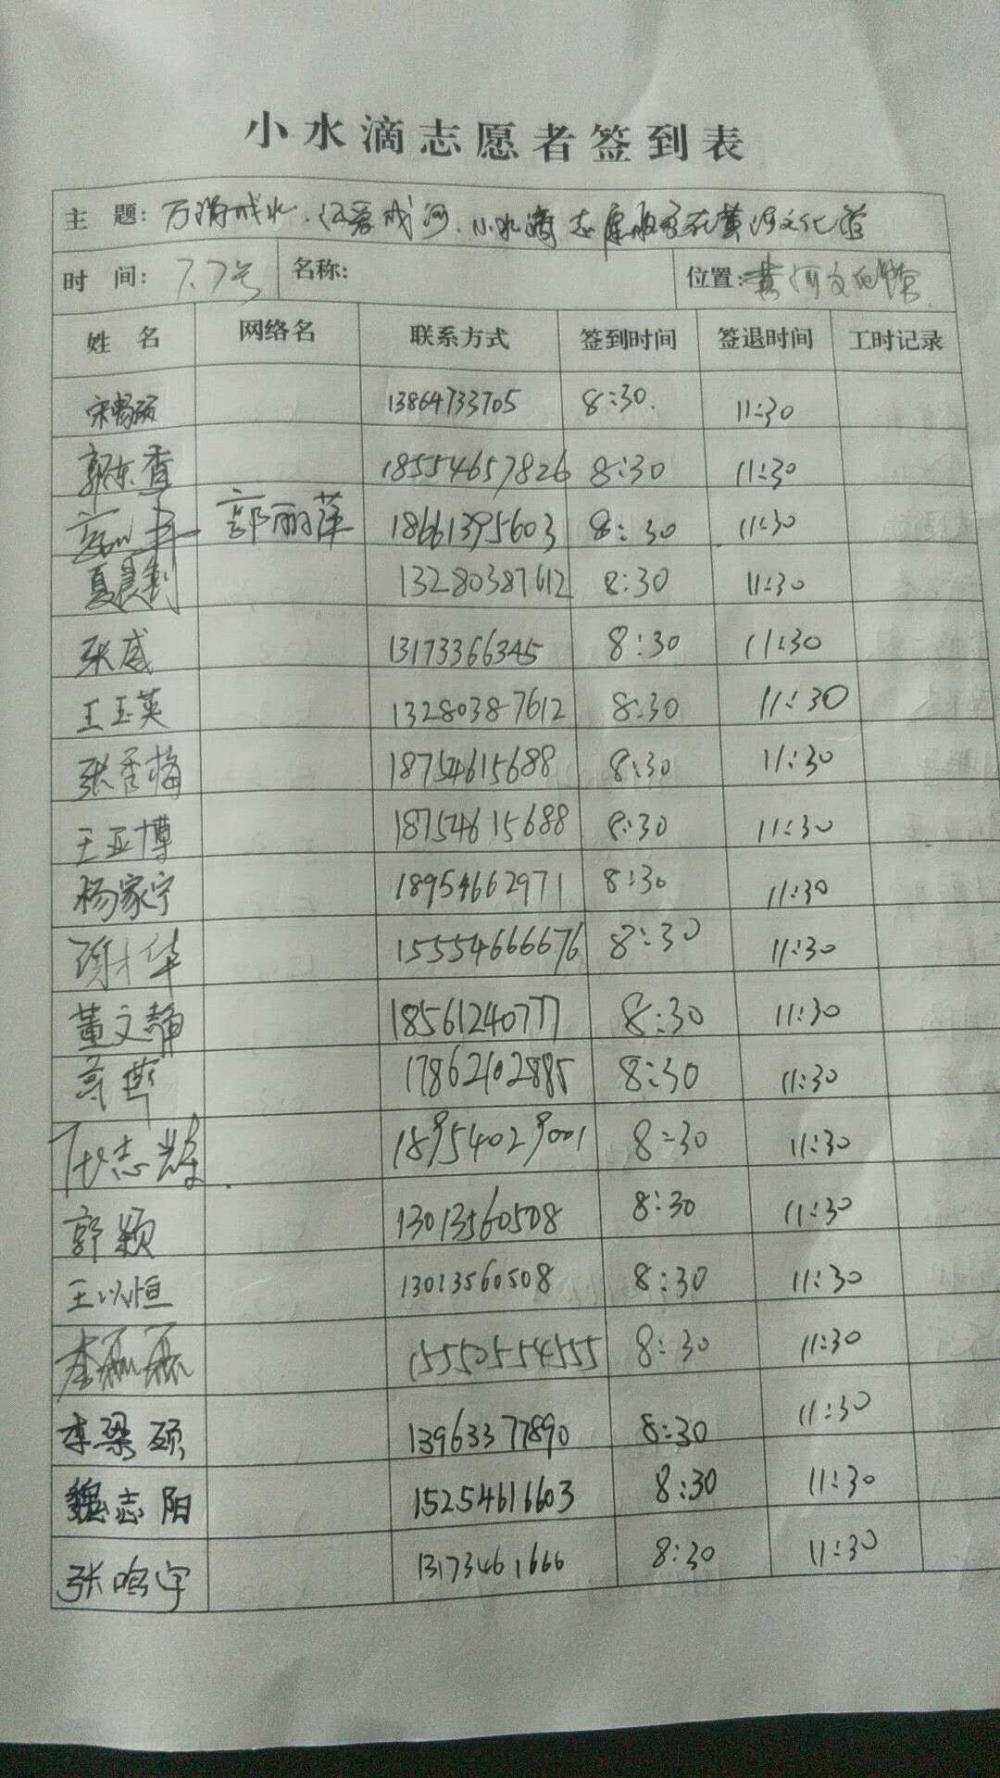 小水滴志愿者签到表
主 题: 万滴成水.汇爱成河.小水滴志愿服务在黄河文化馆
时 间: 7.7号 名称: 位置: 黄河文化馆
姓 名 网络名 联系方式 签到时间 签退时间 工时记录
宋 13864733705 8:30. 11:30
郭东香 18554657826 8:30 11:30
郭丽萍 18661395603 8:30 11:30
夏晨 13280387612 8:30 11:30
张威 13173366345 8:30 11:30
王玉英 13280387612 8:30 11:30
张香梅 18754615688 8:30 11:30
王亚博 18754615688 8:30 11:30
杨家宁 18954662971 8:30 11:30
谢才华 15554666676 8:30 11:30
董文静 18561240777 8:30 11:30
17862102885 8:30 11:30
志辉 18954029001 8:30 11:30
郭颖 13013560508 8:30 11:30
王以恒 13013560508 8:30 11:30
李 15550554555 8:30 11:30
李梁硕 13963377890 8:30 11:30
魏志阳 15254616603 8:30 11:30
张鸣宇 13173461666 8:30 11:30